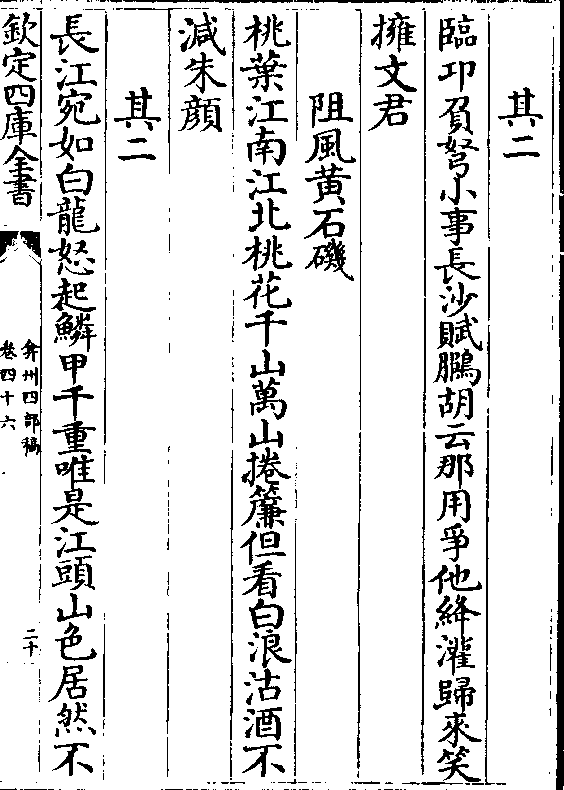 其二
臨邛負弩小事長沙賦鵩胡云那用爭他絳灌歸來笑
擁文君
阻風黃石磯
桃葉江南江北桃花千山萬山捲簾但看白浪沽酒不
減朱顔
其二
長江宛如白龍怒起鱗甲千重唯是江頭山色居然不
欽定四庫全書
弇州四部稿
卷四十六
二十